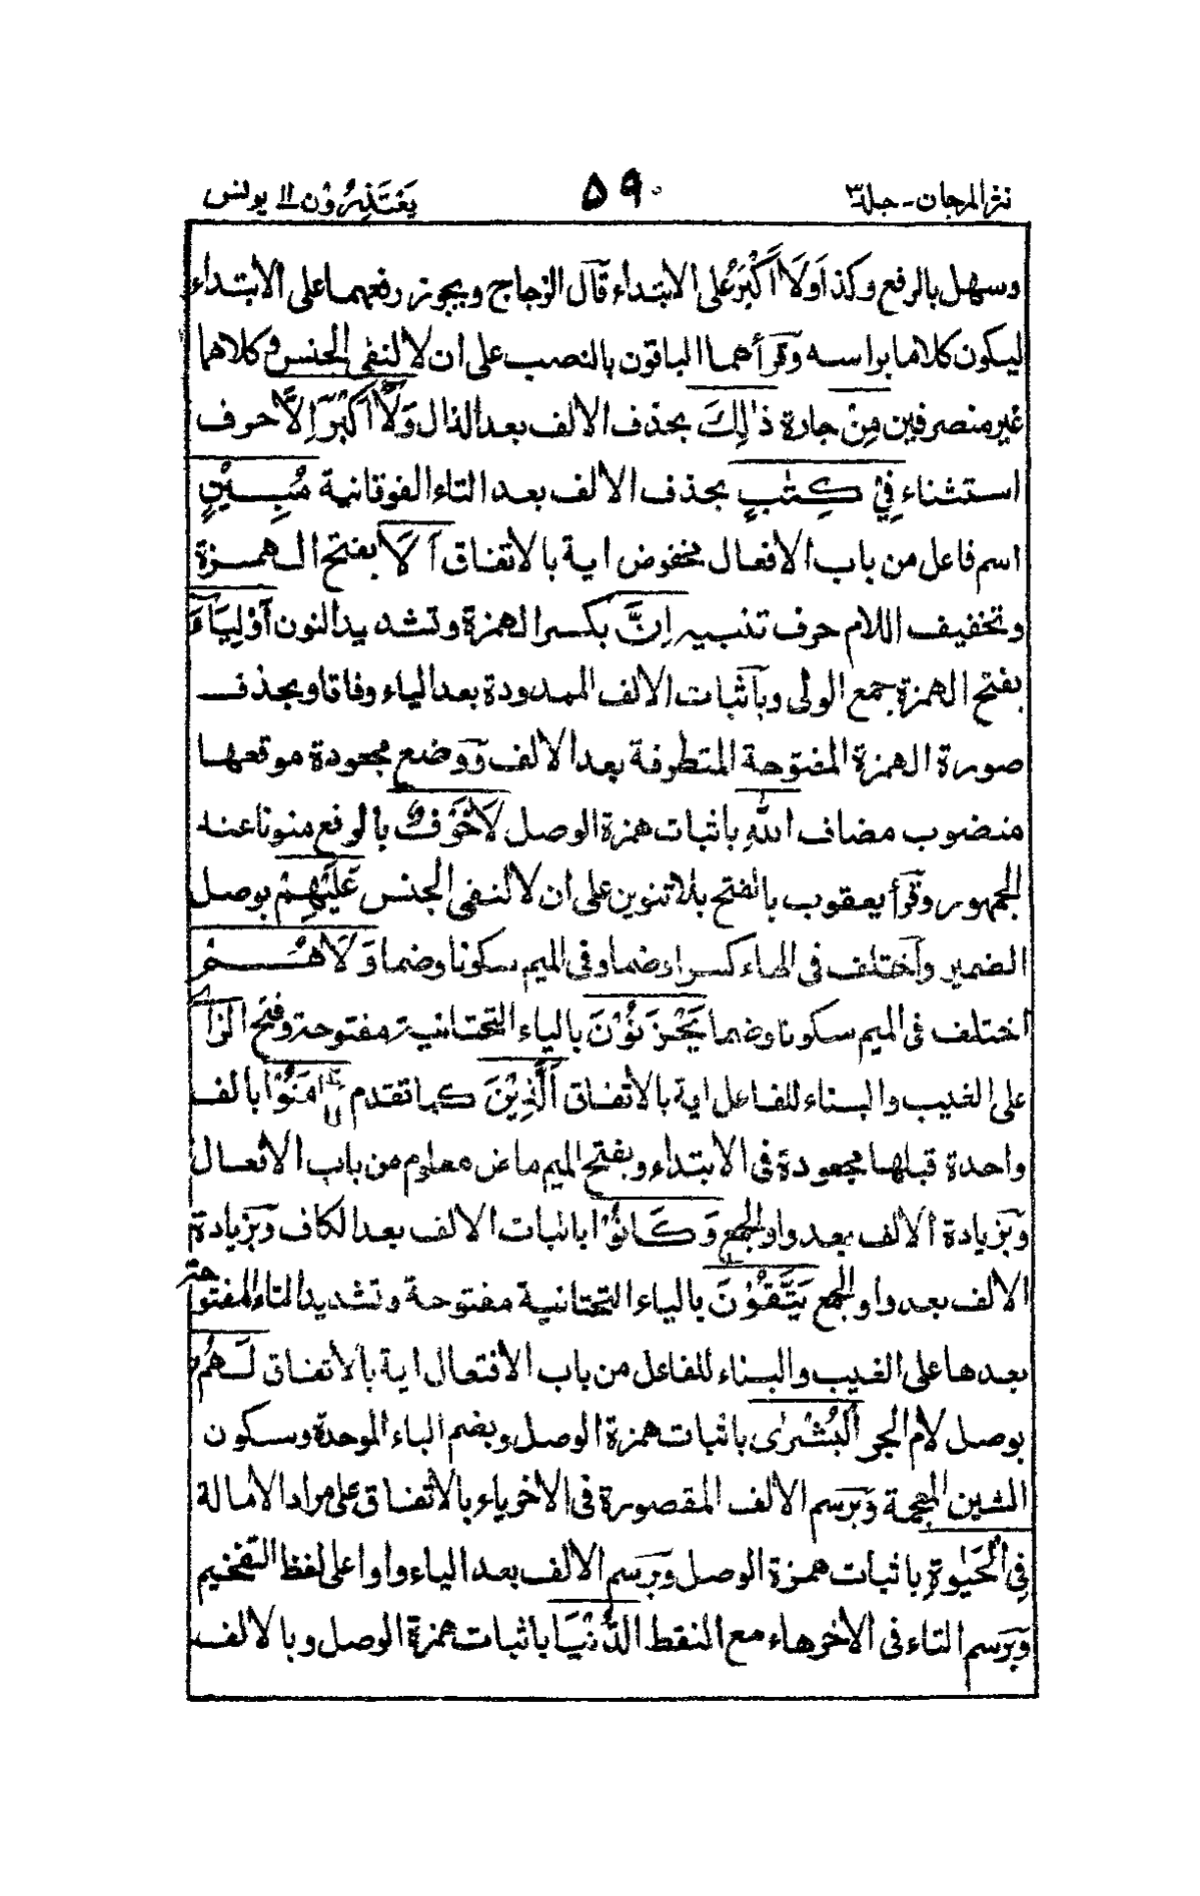 نثر المرجان - جلد ٣ ٥٩٠ يَعْتَذِرُوْن ١١ يونس
وسهل بالرفع وكذا وَلَا أَكْبَرُ على الابتداء قال الزجاج ويجوز رفعهما على الابتداء
ليكون كلاما براسه وقرأهما الباقون بالنصب على ان لا لنفى الجنس وكلاهما
غير منصرفين مِنْ جارة ذٰلِكَ بحذف الالف بعد الذال وَلَا أَكْبَرَ إِلَّا حرف
استثناء فِيْ كِتٰبٍ بحذف الالف بعد التاء الفوقانية مُبِيْنٍ
اسم فاعل من باب الافعال مخفوض اية بالاتفاق اَلَا بفتح الهمزة
وتخفيف اللام حرف تنبيه إِنَّ بكسر الهمزة وتشديد النون أَوْلِيَاءَ
بفتح الهمزة جمع الولى وباثبات الالف الممدودة بعد الياء وفاقا وبحذف
صورة الهمزة المفتوحة المتطرفة بعد الالف ووضع مجعودة موقعها
منصوب مضاف اللّٰهِ باثبات همزة الوصل لَا خَوْفٌ بالرفع منونا عند
الجمهور وقرأ يعقوب بالفتح بلا تنوين على ان لا لنفى الجنس عَلَيْهِمْ بوصل
الضمير واختلف فى الهاء كسرا وضما وفى الميم سكونا وضما وَلَا هُمْ
اختلف فى الميم سكونا وضما يَحْزَنُوْنَ بالياء التحتانية مفتوحة وفتح الزاى
على الغيب والبناء للفاعل اية بالاتفاق اَلَّذِيْنَ كما تقدم اٰمَنُوْا بالف
واحدة قبلها مجعودة فى الابتداء وبفتح الميم ماض معلوم من باب الافعال
وبزيادة الالف بعد واو الجمع وَكَانُوْا باثبات الالف بعد الكاف وبزيادة
الالف بعد واو الجمع يَتَّقُوْنَ بالياء التحتانية مفتوحة وتشديد التاء المفتوحة
بعدها على الغيب والبناء للفاعل من باب الافتعال اية بالاتفاق لَهُمُ
بوصل لام الجر اَلْبُشْرٰى باثبات همزة الوصل وبضم الباء الموحدة وسكون
الشين المعجمة وبرسم الالف المقصورة فى الاخر ياء بالاتفاق على مراد الامالة
فِى الْحَيٰوةِ باثبات همزة الوصل وبرسم الالف بعد الياء واوا على لفظ التفخيم
وبرسم التاء فى الاخر هاء مع النقط الدُّنْيَا باثبات همزة الوصل وبالالف